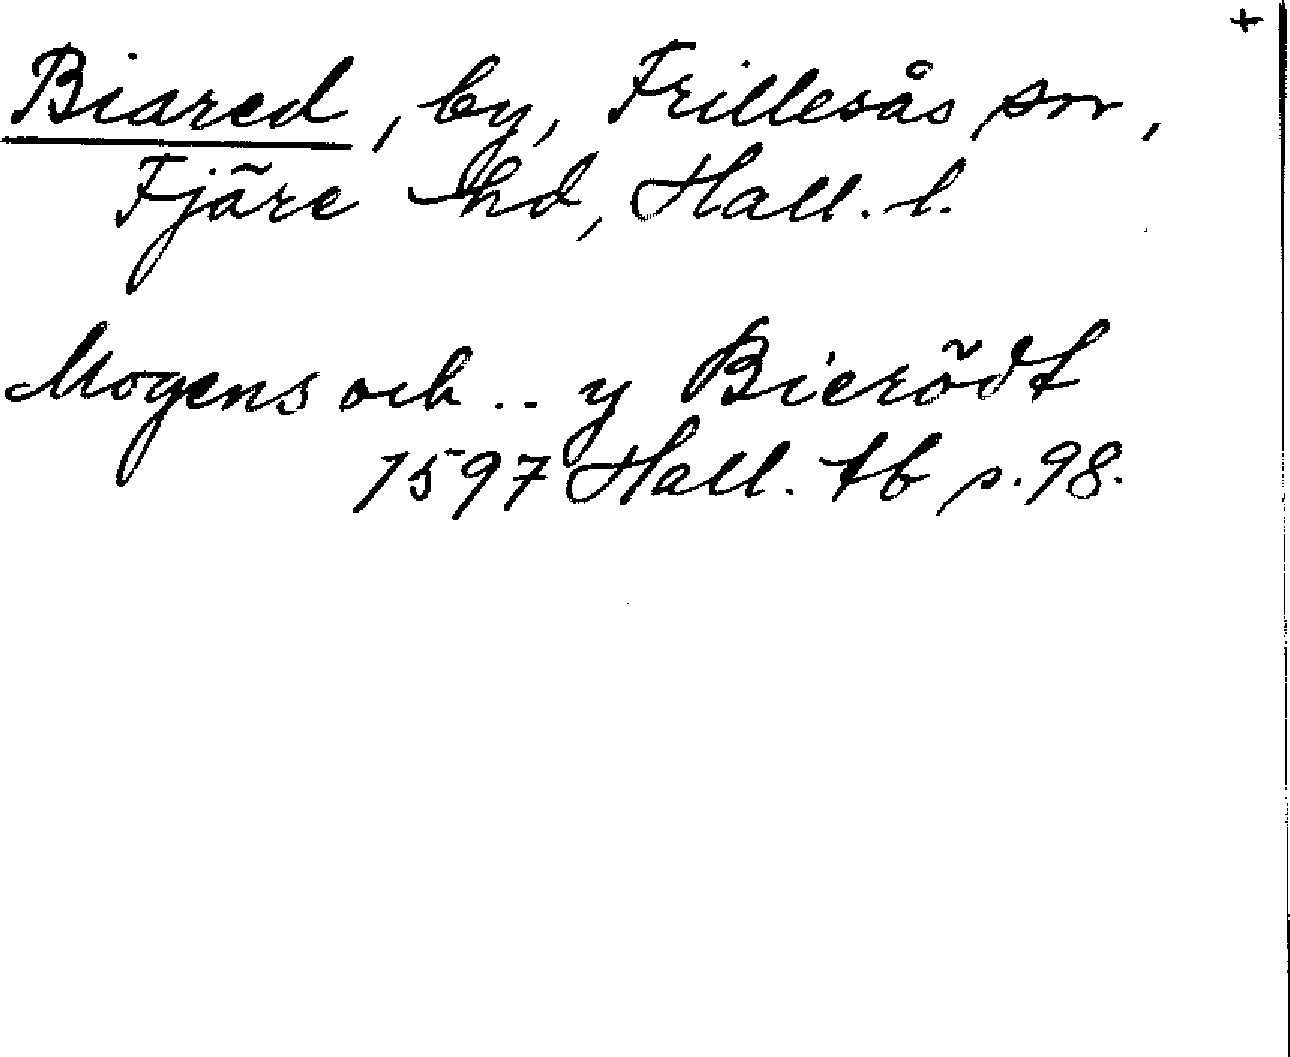 +
Biared, by, Frillesås sn,
Fjäre hd, Hall. l.
Mogens och .. y Bierödt
1597 Hall. tb s. 98.